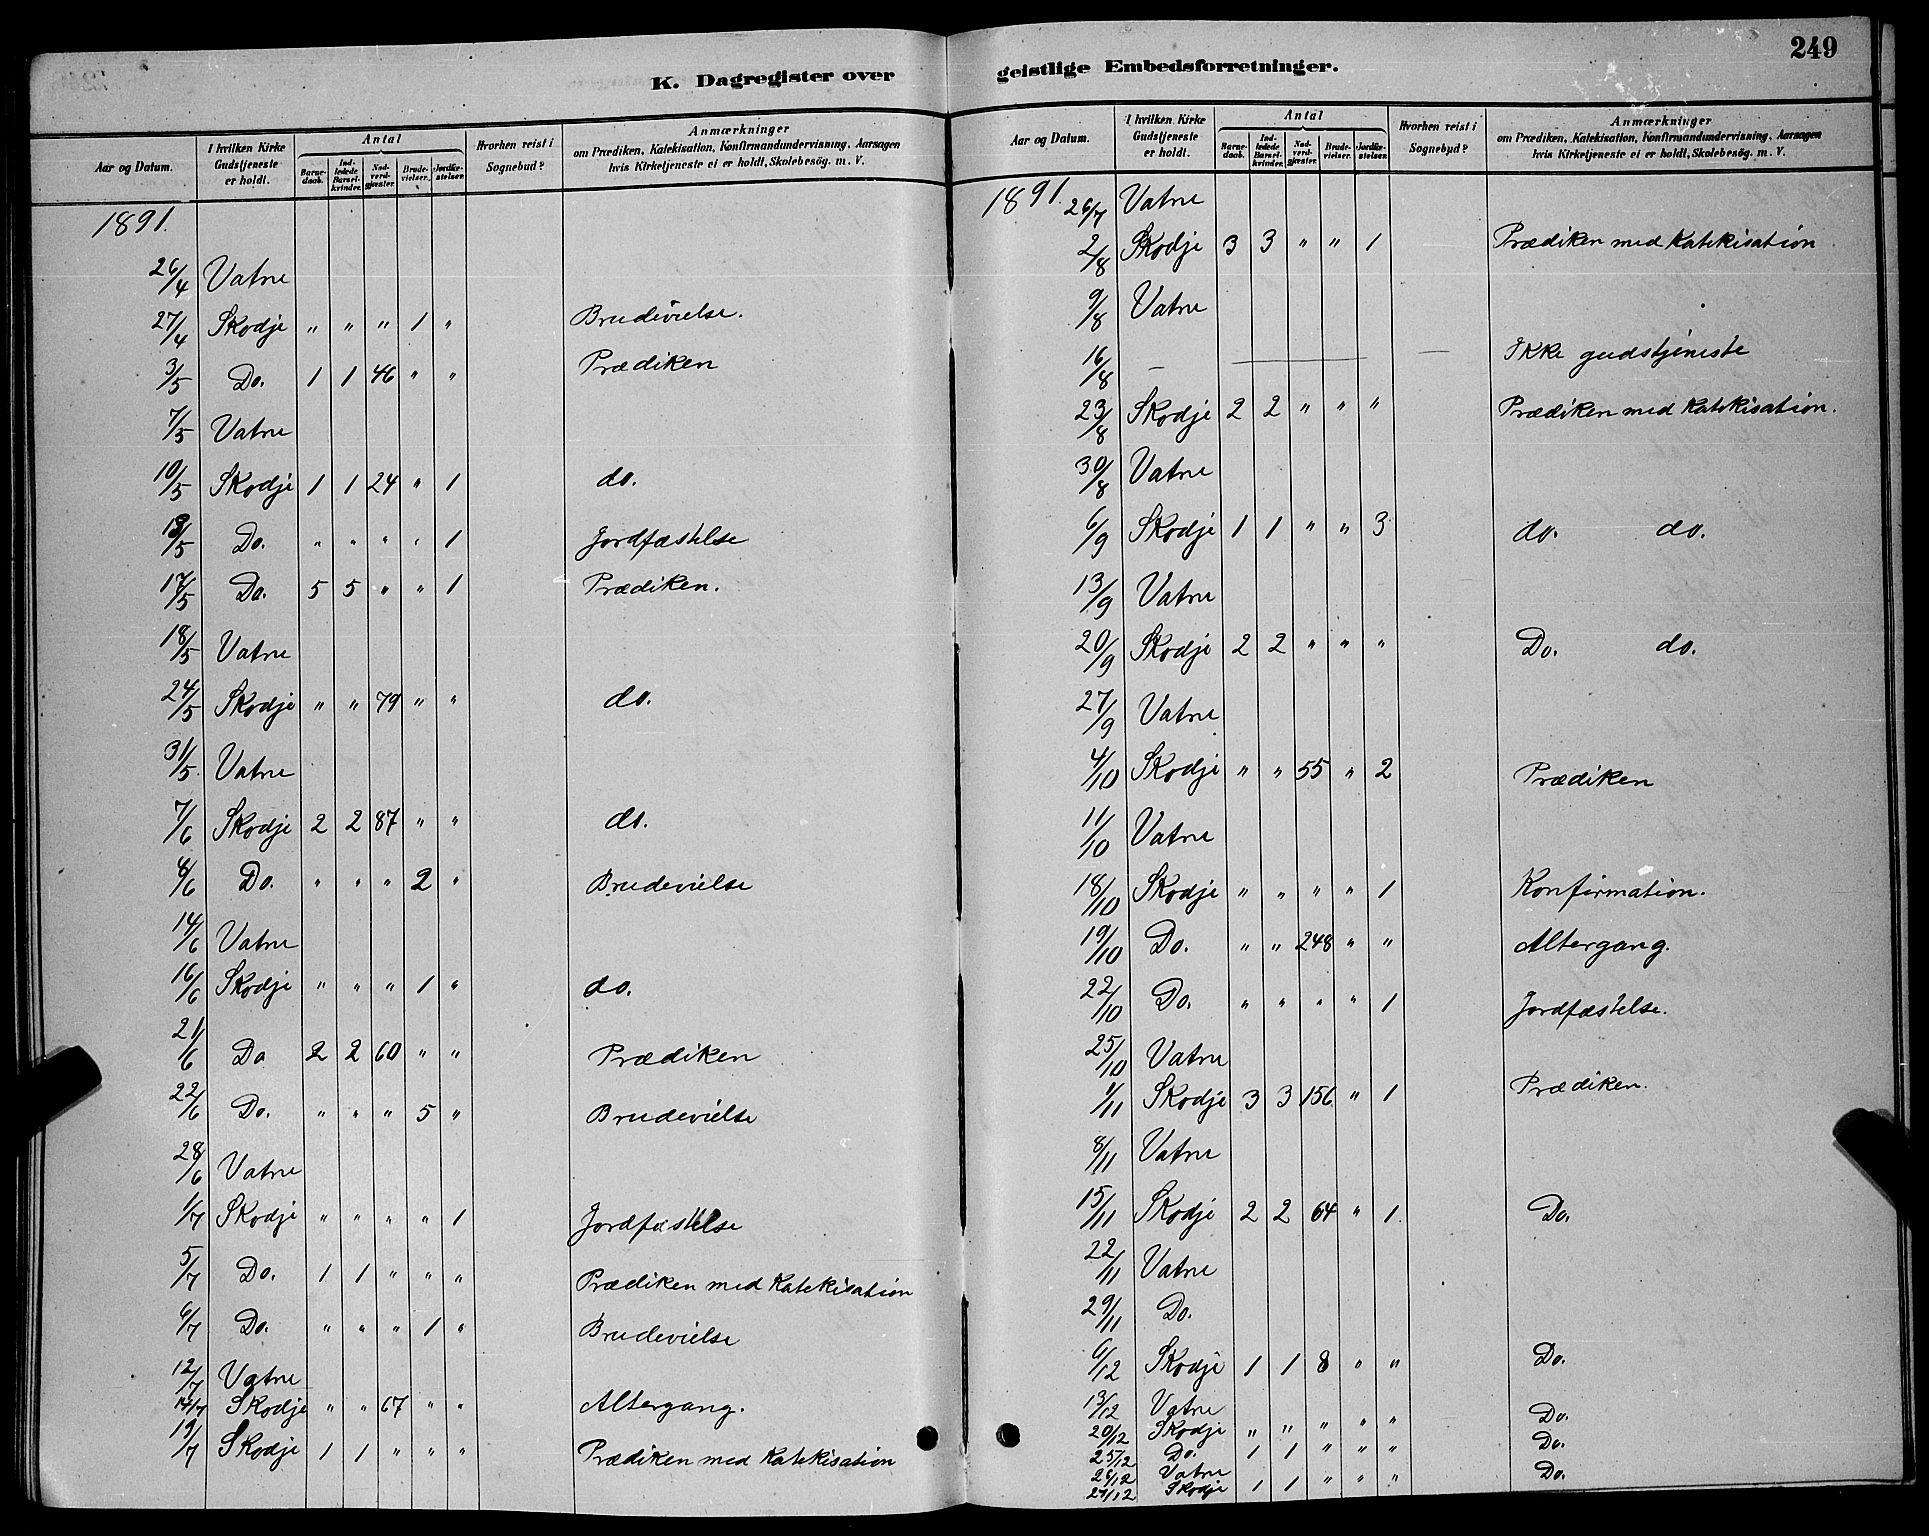 249
K. Dagregister over geistlige Embedsforretninger.
Aar og Datum. | I hvilken Kirke Gudstjeneste er holdt. | Antal | Barne-daab. | Ind-ledede Barsel-kvinder. | Nad-verd-gjæster. | Brude-vielser. | Jordfæ-stelser. | Hvorhen reist i Sognebud? | Anmærkninger om Prædiken, Katekisation, Konfirmandundervisning, Aarsagen hvis Kirketjeneste ei er holdt, Skolebesög. m. V.
1891.
26/4 Vatne
27/4 Skodje " " " 1 " Brudevielse.
3/5 Do. 1 1 46 " " Prædiken
7/5 Vatne
10/5 Skodje 1 1 24 " 1 do.
/5 Do. " " " " 1 Jordfæstelse
17/5 Do. 5 5 " " 1 Prædiken.
18/5 Vatne
24/5 Skodje " " 79 " " do.
31/5. Vatne
7/6 Skodje 2 2 87 " " do.
/6 Do. " " " 2 " Brudevielse
14/6 Vatne
16/6 Skodje " " " 1 " do.
21/6 Do 2 2 60 " " Prædiken
22/6 Do. " " " 5 " Brudevielse
28/6 Vatne
1/7 Skodje " " " " 1 Jordfæstelse
5/7 Do. 1 1 " " " Prædiken med Katekisation
6/7 Do. " " " 1 " Brudevielse
12/7 Vatne
14/7 Skodje " " 67 " " Altergang.
19/7 Skodje 1 1 " " " Prædiken med Katekisation
Aar og Datum. | I hvilken Kirke Gudstjeneste er holdt. | Antal | Barne-daab. | Ind-ledede Barsel-kvinder. | Nad-verd-gjæster. | Brude-vielser. | Jordfæ-stelser. | Hvorhen reist i Sognebud? | Anmærkninger om Prædiken, Katekisation, Konfirmandundervisning, Aarsagen hvis Kirketjeneste ei er holdt, Skolebesög. m. V.
1891. 26/7 Vatne
2/8 Skodje 3 3 " " 1 Prædiken med Katekisation
9/8 Vatne
16/8 — — — Ikke gudstjeneste
23/8 Skodje 2 2 " " " Prædiken med Katekisation.
30/8 Vatne
6/9 Skodje 1 1 " " 3 do. do.
13/9 Vatne
20/9 Skodje 2 2 " " " Do. do.
27/9 Vatne
4/10 Skodje " " 55 " 2 Prædiken
11/10 Vatne
18/10 Skodje " " " " 1 Konfirmation.
19/10 Do. " " 248 " " Altergang.
22/10 Do. " " " " 1 Jordfæstelse.
25/10 Vatne
1/11 Skodje 3 3 156 " 1 Prædiken.
8/11 Vatne
15/11 Skodje 2 2 64 " 1. Do.
22/11 Vatne
29/11 Do.
6/12 Skodje 1 1 8 " " Do.
13/12 Vatne
20/12 Skodje " " " " " Do.
25/12 Do. 1 1 " " " Do.
26/12 Vatne
27/12 Skodje 1 1 " " " Do.